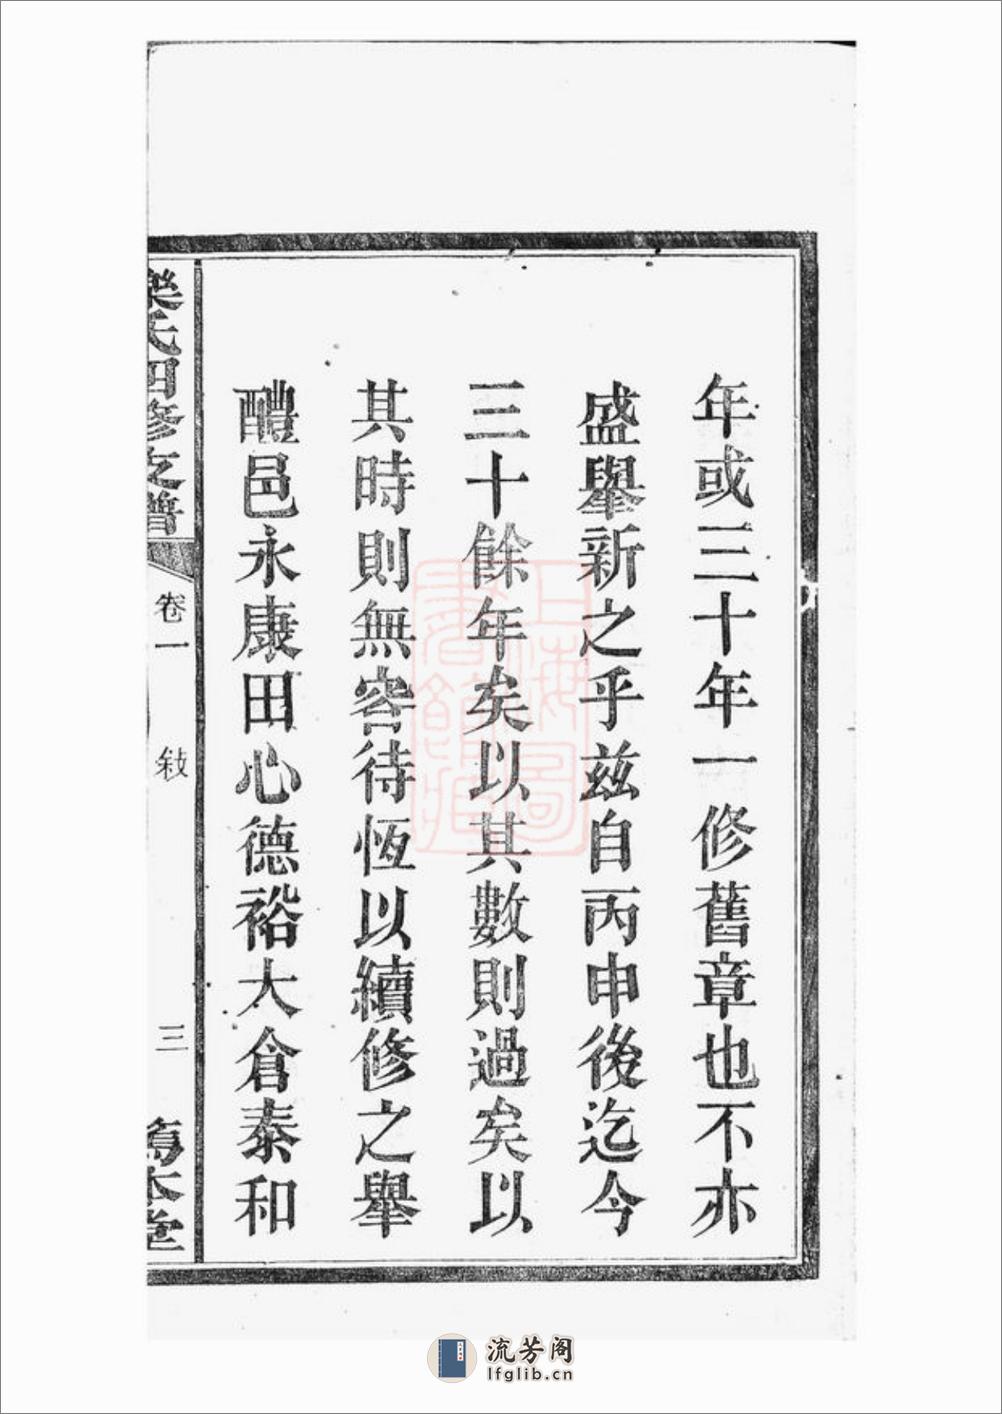 年或三十年一修舊章也不亦
盛舉新之乎兹自丙申後迄今
三十餘年矣以其數則過矣以
其時則無容待恆以續修之舉
醴邑永康田心德裕大倉泰和
樂氏四修支譜
卷一
敍
三
篤本堂
上海圖書館藏
流芳阁
lfglib.cn